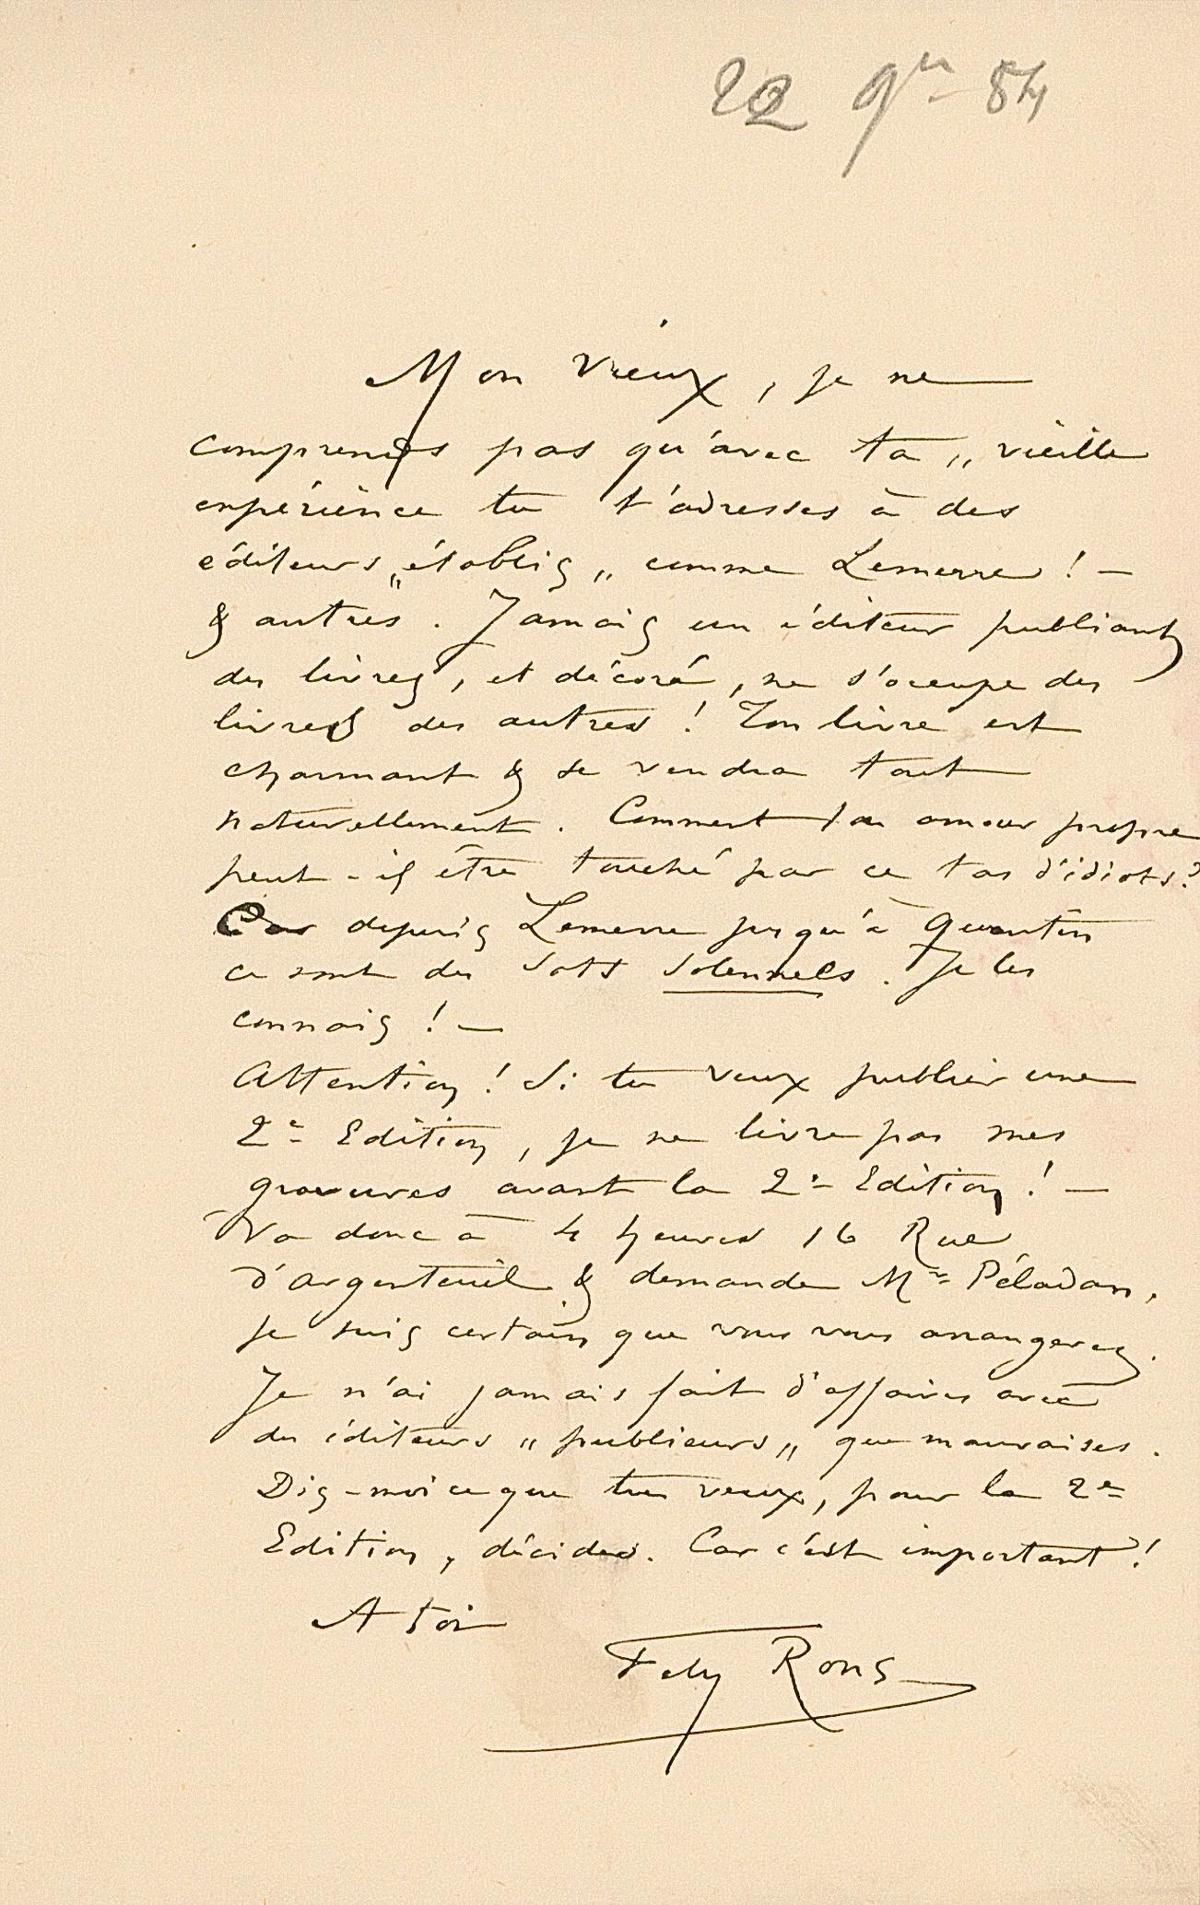 22 9bre 84
Mon vieux, je ne
comprends pas qu'avec ta „ vieille
expérience tu t'adresses à des
éditeurs „établis„ comme Lemerre ! —
& autres . Jamais un éditeur publiant
des livres, et décoré, ne s'occupe des
livres des autres ! Ton livre est
charmant & se vendra tout
naturellement . Comment ton amour propre
peut-il être touché par ce tas d'idiots ?
Car depuis Lemerre jusqu'à Quantin
ce sont des sots solennels . Je les
connais ! —
Attention ! Si tu veux publier une
2e Edition, je ne livre pas mes
gravures avant la 2e Edition ! —
Va donc à 4 heures 16 Rue
d'argenteuil & demande Mr Péladan,
je suis certain que vous vous arrangerez.
Je n'ai jamais fait d'affaires avec
des éditeurs „ publieurs „ que mauvaises .
Dis-moi ce que tu veux, pour la 2e
Edition, décides. Car c'est important !
A toi
Fely Rops